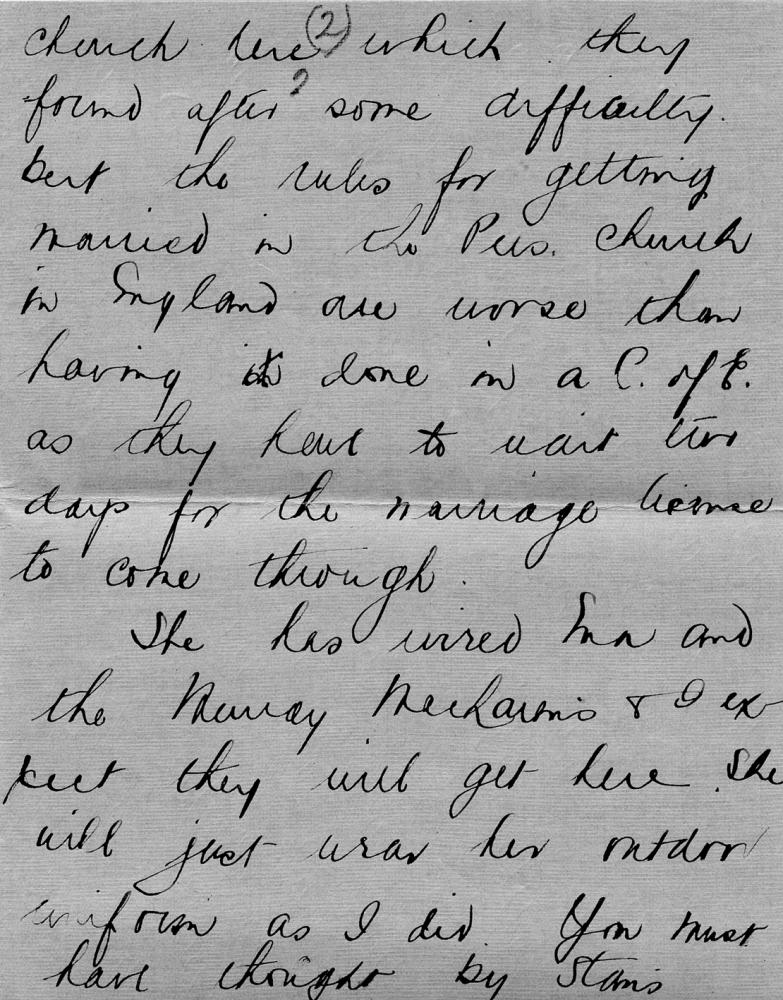 (2)
church here, which they
found after some difficulty.
but the rules for getting
married in the Pres. church
in England are worse than
having it done in a C. of E.
as they have to wait two
days for the marriage license
to come through.
She has wired Ina and
the Murray & I ex
pect they will get here. She
will just wear her outdoor
uniform as I did. You must
have thought by Stan's